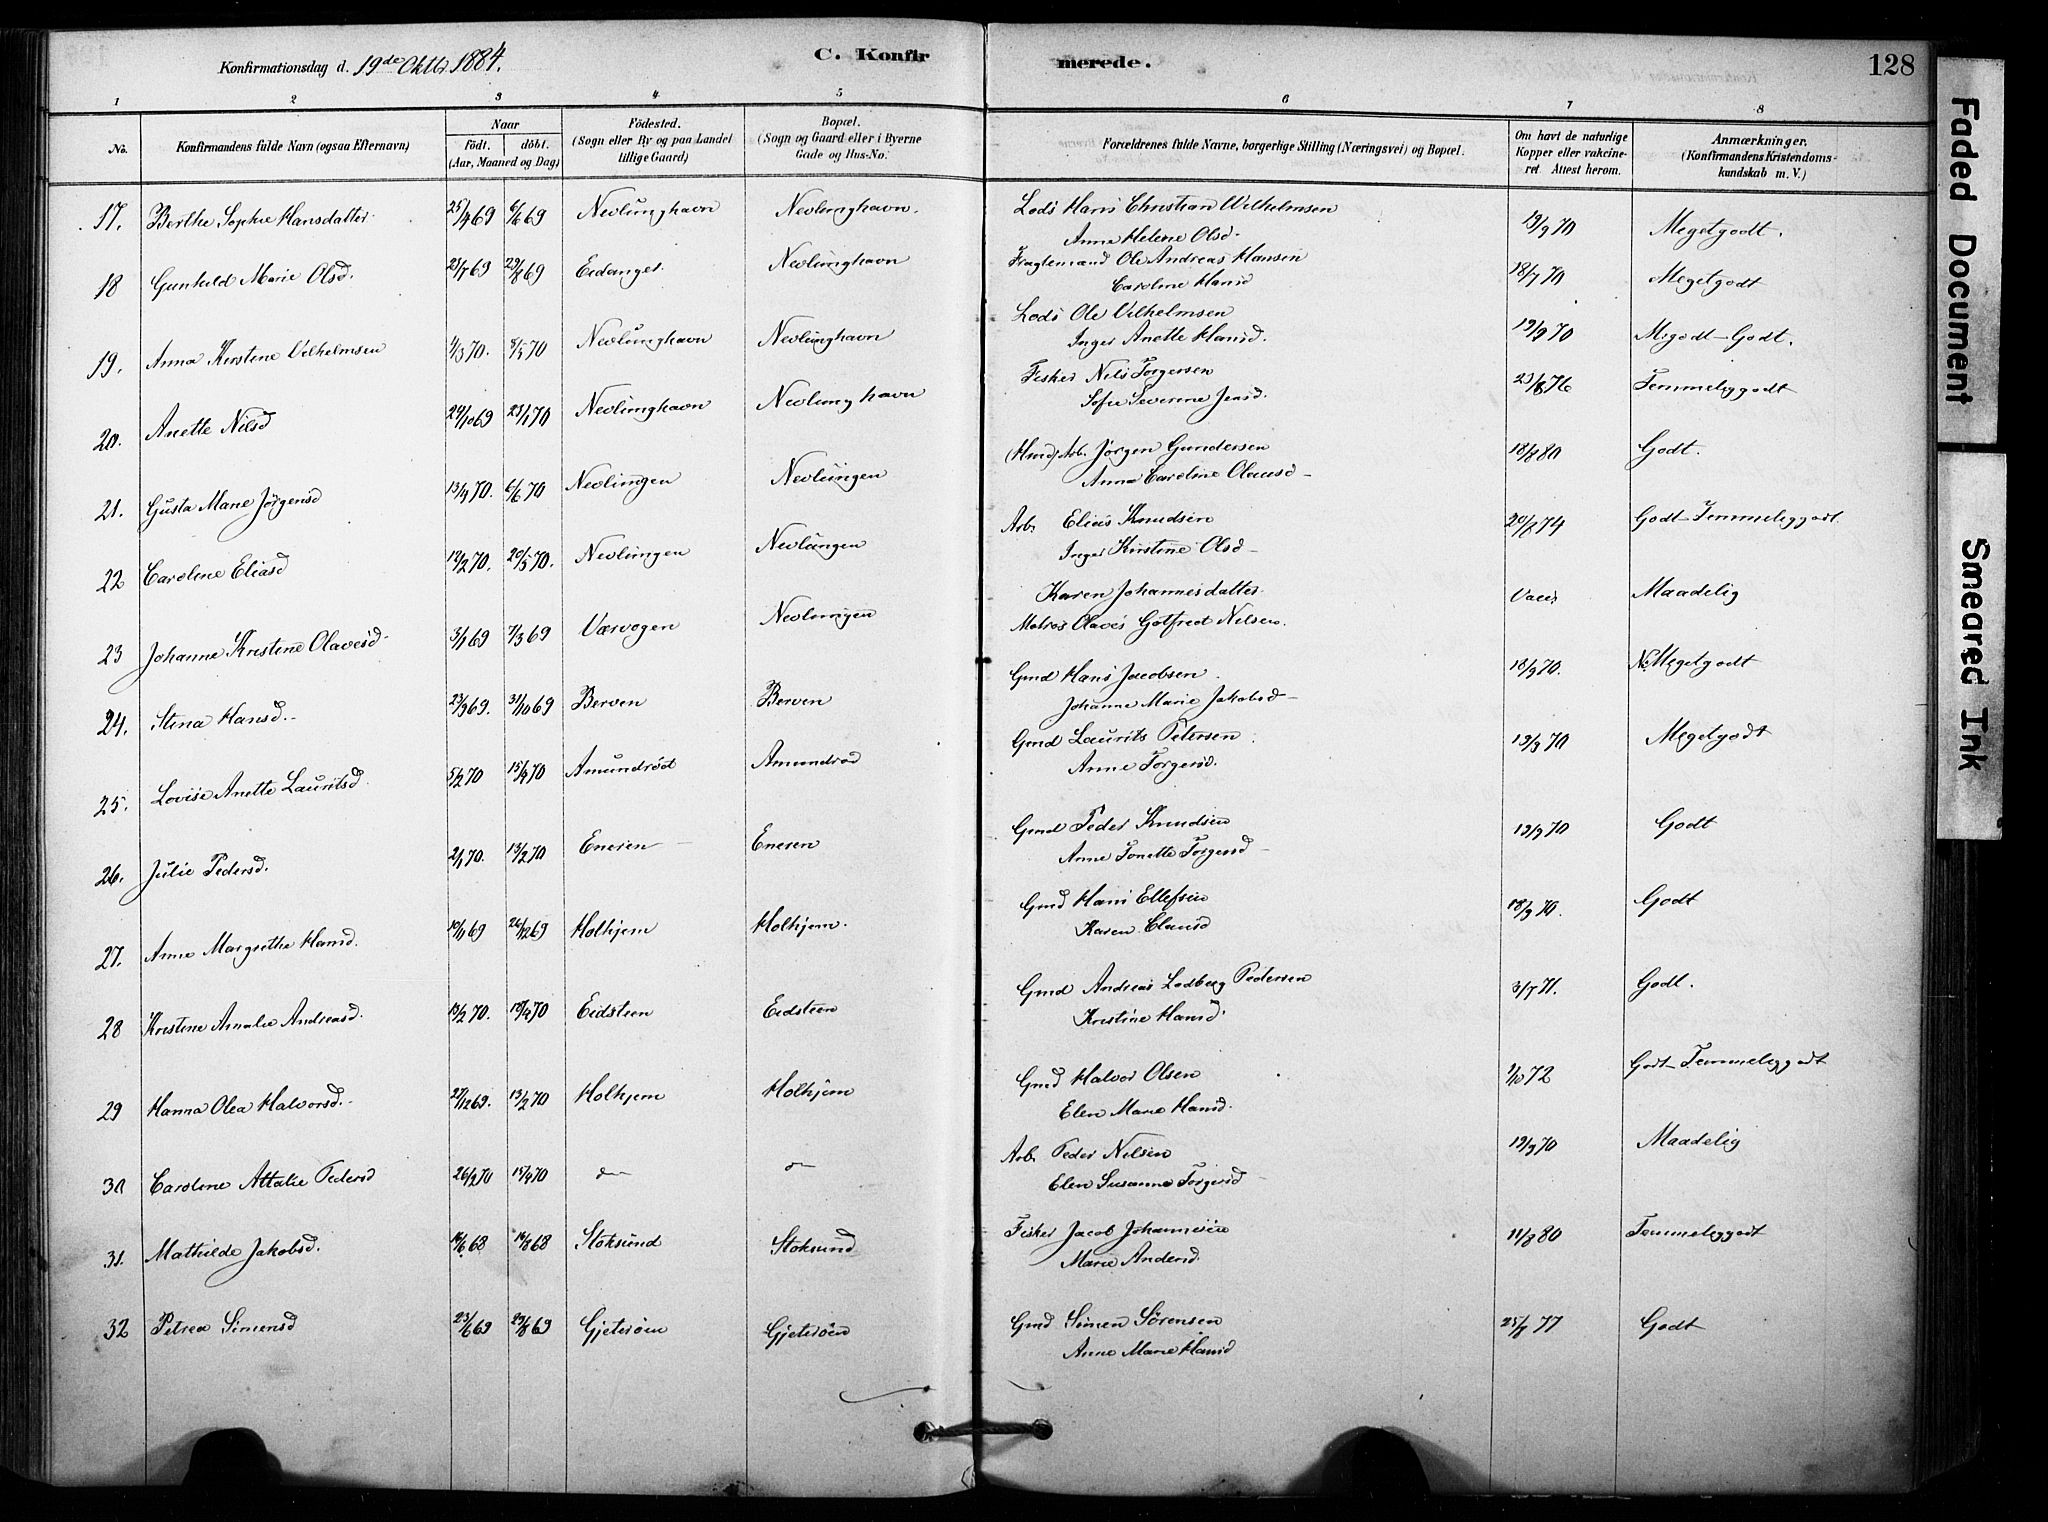 Konfirmationsdag d. 19de Oktbr 1884.
C. Konfirmerede.
128
1 2 3 4 5 6 7 8
No.
Konfirmandens fulde Navn (ogsaa Efternavn)
Naar
Födt. döbt.
(Aar, Maaned og Dag)
Födested.
(Sogn eller By og paa Landet
tillige Gaard)
Bopæl.
(Sogn og Gaard eller i Byerne
Gade og Hus-No.)
Forældrenes fulde Navne, borgerlige Stilling (Næringsvei) og Bopæl.
Om havt de naturlige
Kopper eller vakcine-
ret. Attest herom.
Anmærkninger.
(Konfirmandens Kristendoms-
kundskab m. V.)
17. Berthe Sophie Hansdatter 25/4 69 6/6 69 Nevlunghavn Nevlunghavn. Lods Hans Christian Vilhelmsen 19/9 70 Megetgodt.
Anna Helene Olsd.
18 Gunhild Marie Olsd. 29/8 69 Eidanger Nevlunghavn Fragtemand Ole Andreas Hansen 18/7 70 Megetgodt
Caroline Hansd
19. Anna Kirstine Vilhelmsen 8/5 70 Nevlunghavn Nevlunghavn Lods Ole Vilhelmsen 19/9 70 Megodt-Godt.
Inger Anette Hansd.
20. Anette Nilsd 24/10 69 23/1 70 Nevlunghavn Nevlunghavn Fisker Nils Torgersen 23/8 76 Temmeliggodt
Sofie Severine Jensd.
21. Gusta Marie Jörgensd 13/4 70. 6/6 70 Nevlungen Nevlungen (Hmd) Arb. Jörgen Gundersen 18/8 80 Godt.
Anna Caroline Olausd
22 Caroline Eliasd 12/2 70. 20/5 70. Nevlungen Nevlungen Arb. Elias Knudsen 20/8 74 Godt-Temmeliggodt.
Inger Kirstine Olsd
23 Johanne Kristine Olavesd. 3/1 69 7/3 69 Værvagen Nevlungen Karen Johannesdatter Vacc. Maadelig
Matros Olaves Gotfred Nilsen.
24. Stina Hansd. 23/9 69. 31/10 69 Berven Berven Gmd Hans Jacobsen. 18/9 70. Megetgodt
Johanne Marie Jakobsd
25. Lovise Anette Lauritsd. 5/2 70 15/4 70 Amundröd Amundröd Gmd Laurits Petersen. 19/9 70 Megetgodt
Anne Torgersd.
26. Julie Pedersd. 2/1 70. 13/2 70 Enesen Enesen Gmd Peder Knudsen 19/9 70 Godt
Anne Tonette Torgersd
27. Anne Margrethe Hansd. 10/11 69 26/12 69 Holhjem Holhjem. Gmd Hans Ellefsen 18/9 70. Godt
Karen Clausd
28 Kristine Amalie Andreasd. 13/2 70. 18/4 70 Eidsteen Eidsteen Gmd Andreas Lodberg Pedersen 3/7 71. Godt.
Kristine Hansd.
29 Hanna Olea Halvorsd. 27/12 69. 13/2 70 Holhjem Holhjem Gmd Halvor Olsen 72 Godt-Temmeliggodt
Elen Marie Hansd.
30 Caroline Attalie Pedersd 26/2 70 15/4 70 Arb. Peder Nilsen 19/9 70 Maadelig
Elen Susanne Torgersd
31. Mathilde Jakobsd. 16/6 68 16/8 68 Stoksund Stoksund Fisker Jacob Johannesen 11/8 80 Temmeliggodt
Marie Andersd.
32 Petrea Simensd 23/6 69 29/8 69 Gjetersöen Gjetersöen Gmd Simen Sörensen 25/8 77 Godt
Anne Marie Hansd
Faded Document
Smeared Ink